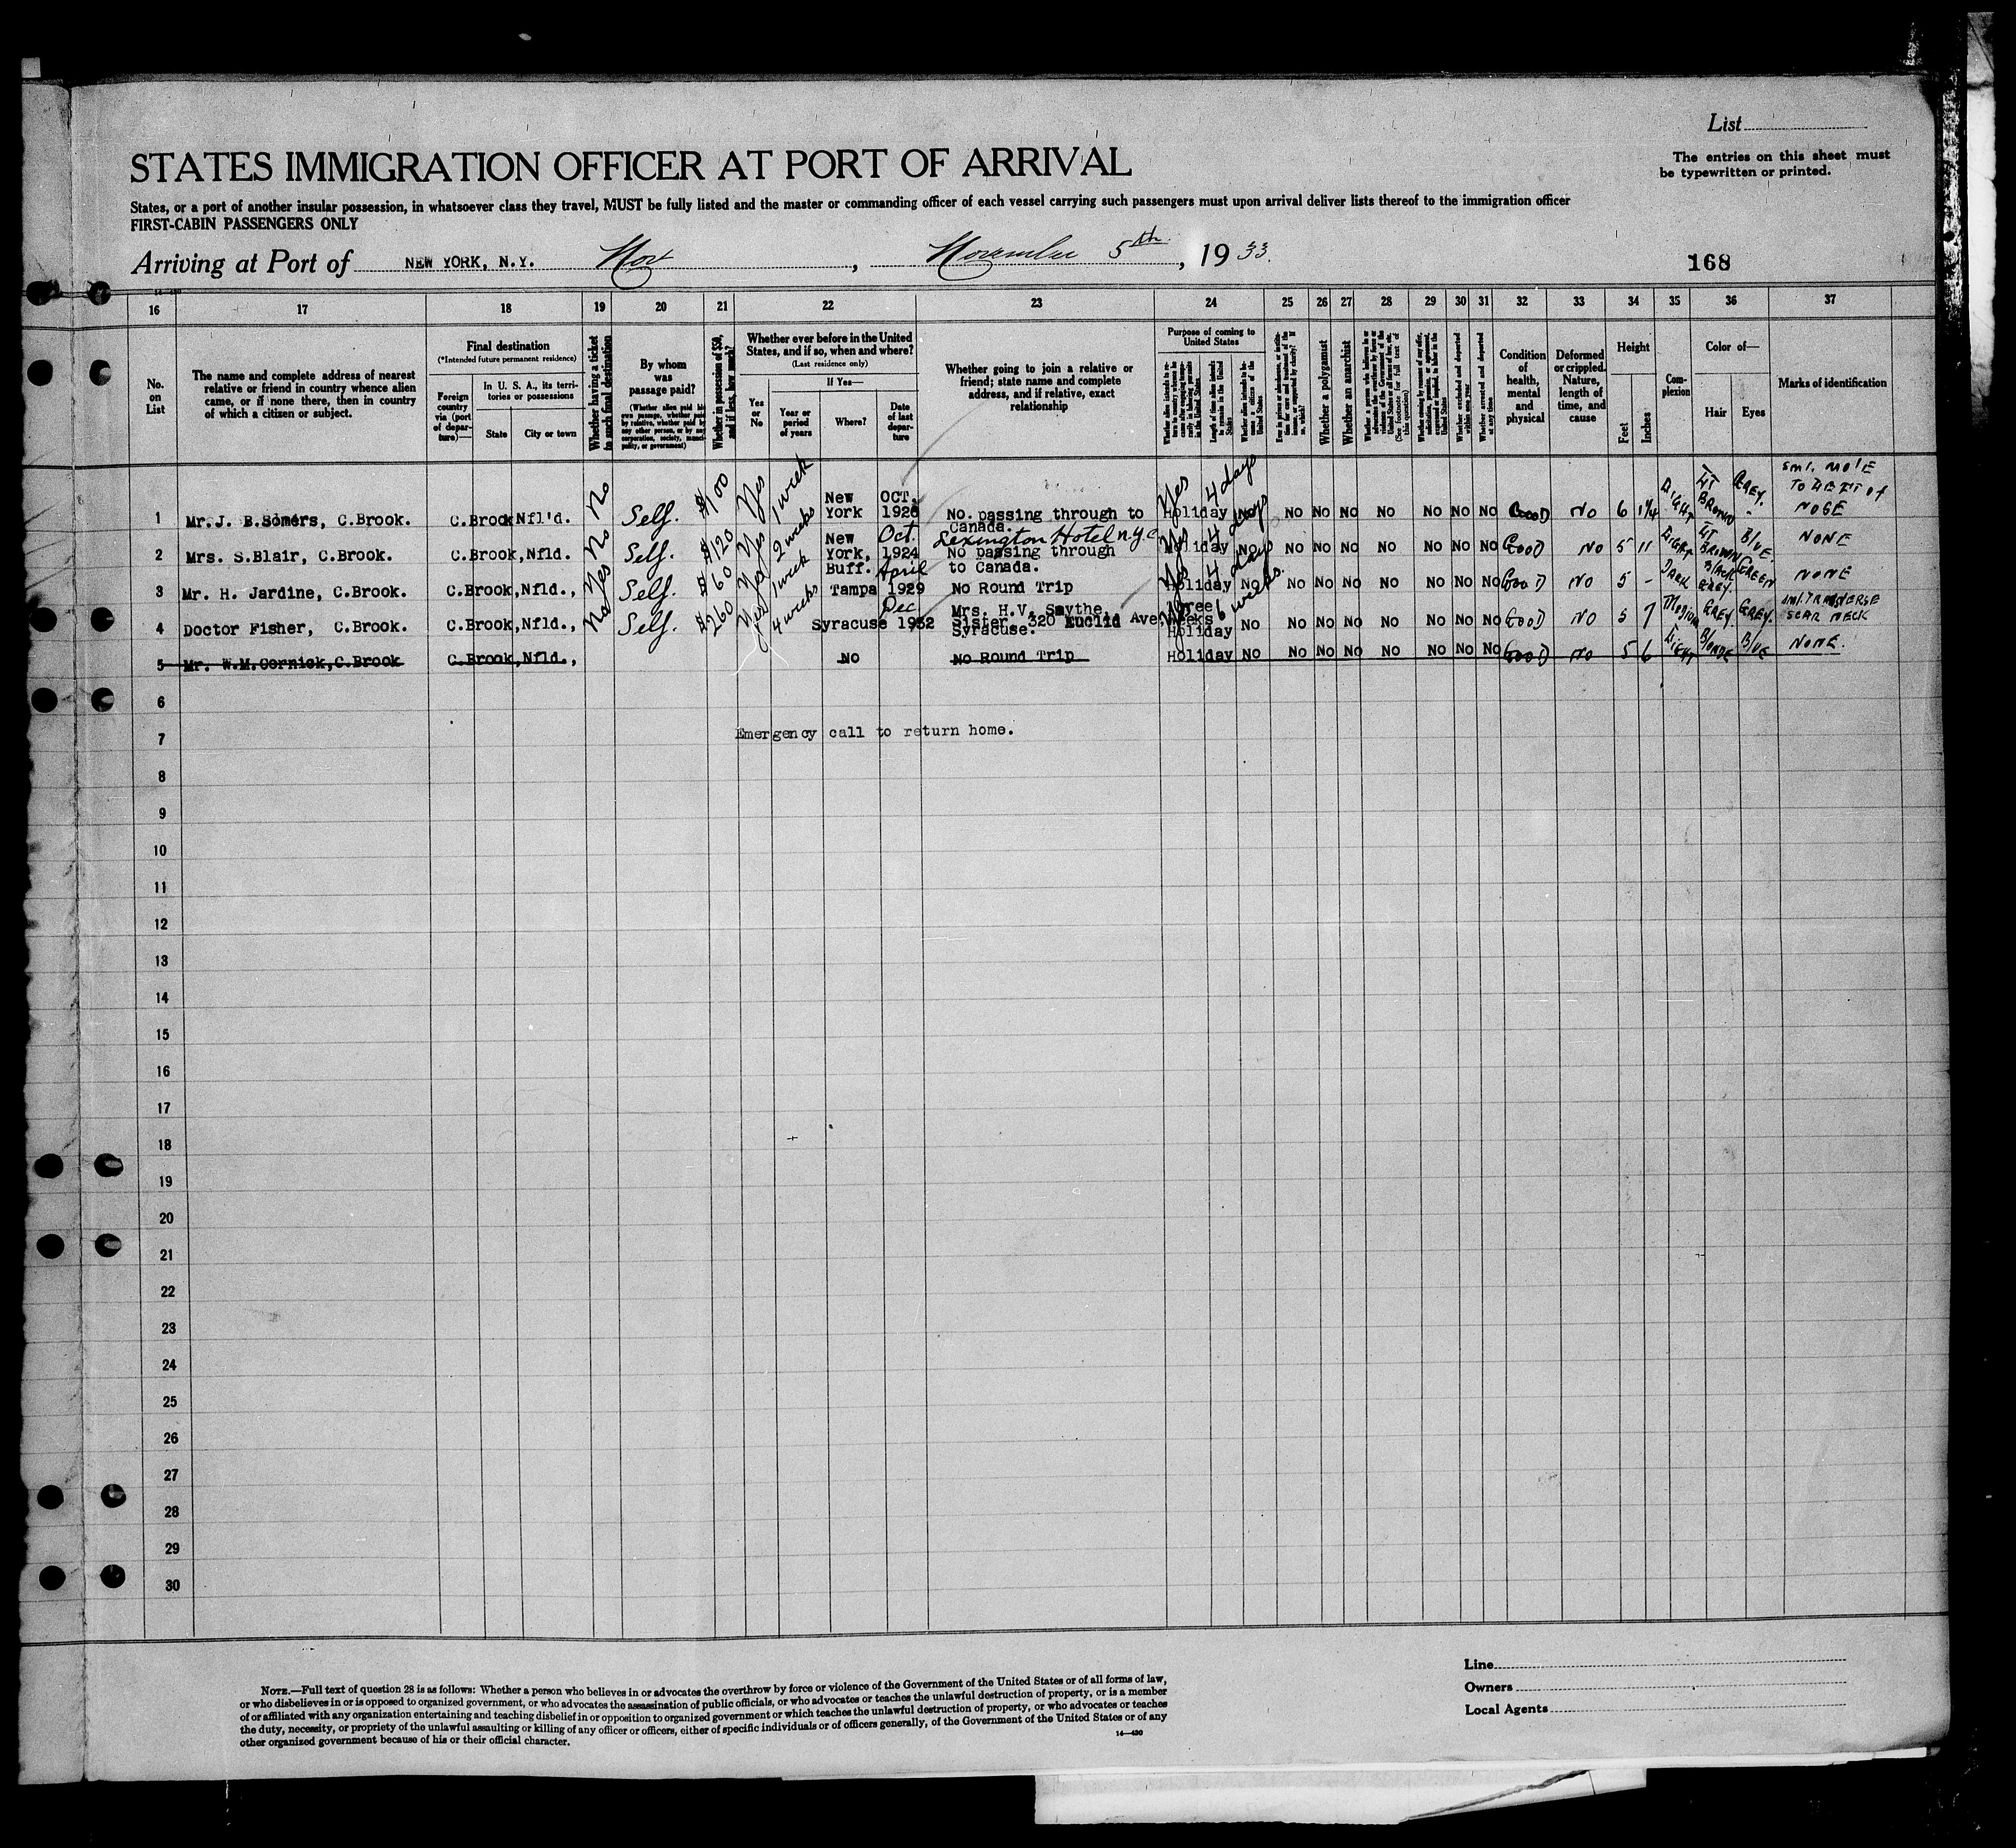 List
STATES IMMIGRATION OFFICER AT PORT OF ARRIVAL
The entries on this sheet must
be typewritten or printed.
States, or a port of another insular possession, in whatsoever class they travel, MUST be fully listed and the master or commanding officer of each vessel carrying such passengers must upon arrival deliver lists thereof to the immigration officer
FIRST-CABIN PASSENGERS ONLY
Arriving at Port of NEW YORK, N.Y. Nov , November 5th , 19 33.
168
16 17 18 19 20 21 22 23 24 25 26 27 28 29 30 31 32 33 34 35 36 37
No. on List
The name and complete address of nearest
relative or friend in country whence alien
came, or if none there, then in country
of which a citizen or subject.
Final destination
(*Intended future permanent residence)
Foreign country via (port of departure)—
In U. S. A., its territories or possessions
State City or town
Whether having a ticket to such final destination
By whom was passage paid?
(Whether alien paid his own passage, whether paid by relative, whether paid by any other person, or by any corporation, society, municipality, or government)
Whether in possession of $50, and if less, how much?
Whether ever before in the United
States, and if so, when and where?
(Last residence only)
If Yes—
Yes or No
Year or period of years
Where?
Date of last departure
Whether going to join a relative or
friend; state name and complete
address, and if relative, exact
relationship
Purpose of coming to United States
Length of time alien intends to remain in the United States
Whether a polygamist
Whether an anarchist
Whether arrested and deported at any time
Condition of health, mental and physical
Deformed or crippled. Nature, length of time, and cause
Height
Feet Inches
Complexion
Color of—
Hair Eyes
Marks of identification
1 Mr. J. B. Somers, C.Brook. C.Brook Nfl'd. No Self. $100 Yes 1 week New York OCT. 1928 No. passing through to Canada. Yes Holiday 4 days No NO NO NO NO NO NO NO GOOD NO 6 1¼ LIGHT LT BROWN GREY. SML. MOLE TO LEFT OF NOSE
2 Mrs. S.Blair, C.Brook. C.Brook, Nfld. No Self. $120 Yes 2 weeks New York, Oct. 1924 Lexington Hotel N.Y.C. No passing through to Canada. Yes Holiday 4 days NO NO NO NO NO NO NO NO GOOD NO 5 11 LIGHT LT BROWN BLUE. NONE
3 Mr. H. Jardine, C.Brook. C.Brook, Nfld., Yes Self. $60 Yes 1 week Buff. Tampa April 1929 No Round Trip Yes Holiday 4 days NO NO NO NO NO NO NO NO GOOD NO 5 - DARK BLACK GREY. GREEN NONE
4 Doctor Fisher, C.Brook. C.Brook, Nfld., No Self. $260 Yes 4 weeks Syracuse Dec 1932 Mrs. H.V. Smythe, Sister. 320 Euclid Ave. Syracuse. Three Weeks Holiday 6 weeks. NO NO NO NO NO NO NO NO GOOD NO 5 7 MEDIUM GREY. GREY. SML. TRANSVERSE SCAR NECK
5 Mr. W.M. Cornick, C.Brook C.Brook, Nfld., No No Round Trip Holiday NO NO NO NO NO NO NO NO GOOD NO 5 6 LIGHT BLONDE BLUE NONE.
6
7 Emergency call to return home.
8
9
10
11
12
13
14
15
16
17
18
19
20
21
22
23
24
25
26
27
28
29
30
NOTE.—Full text of question 28 is as follows: Whether a person who believes in or advocates the overthrow by force or violence of the Government of the United States or of all forms of law,
or who disbelieves in or is opposed to organized government, or who advocates the assassination of public officials, or who advocates or teaches the unlawful destruction of property, or is a member
of or affiliated with any organization entertaining and teaching disbelief in or opposition to organized government or which teaches the unlawful destruction of property, or who advocates or teaches
the duty, necessity, or propriety of the unlawful assaulting or killing of any officer or officers, either of specific individuals or of officers generally, of the Government of the United States or of any
other organized government because of his or their official character.
14—430
Line
Owners
Local Agents